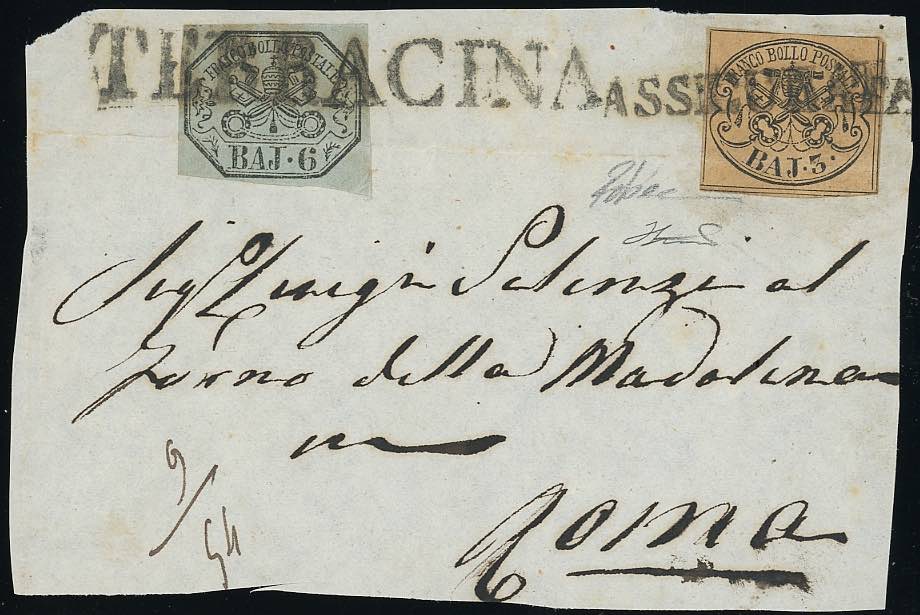 TERRACINA ASSICURATA
FRANCO BOLLO POSTALE
BAJ·6
FRANCO BOLLO POSTALE
BAJ·3·
Sig.r Luigi Salenzi al
forno della Madalena
Roma
9/54